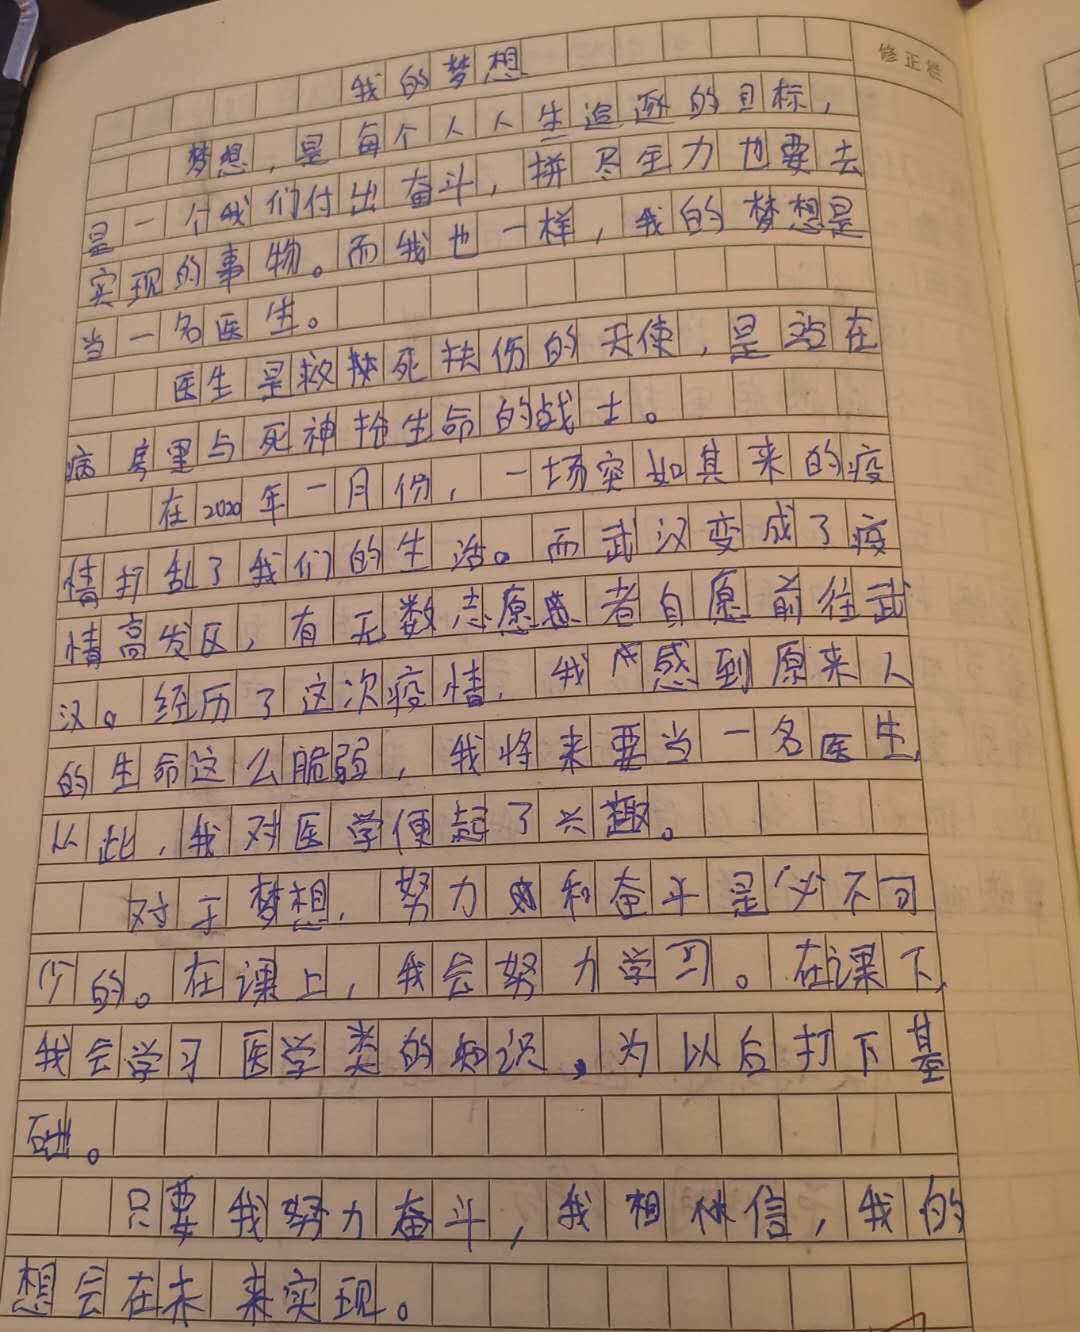 修正栏
我的梦想
梦想，是每个人人生追逐的目标，
是一个我们付出奋斗，拼尽全力也要去
实现的事物。而我也一样，我的梦想是
当一名医生。
医生是救死扶伤的天使，是站在
病房里与死神抢生命的战士。
在2020年一月份，一场突如其来的疫
情打乱了我们的生活。而武汉变成了疫
情高发区，有无数志愿者自愿前往武
汉。经历了这次疫情，我感到原来人
的生命这么脆弱，我将来要当一名医生，
从此，我对医学便起了兴趣。
对于梦想，努力和奋斗是必不可
少的。在课上，我会努力学习。在课下，
我会学习医学类的知识，为以后打下基
础。
只要我努力奋斗，我相信，我的
想会在未来实现。